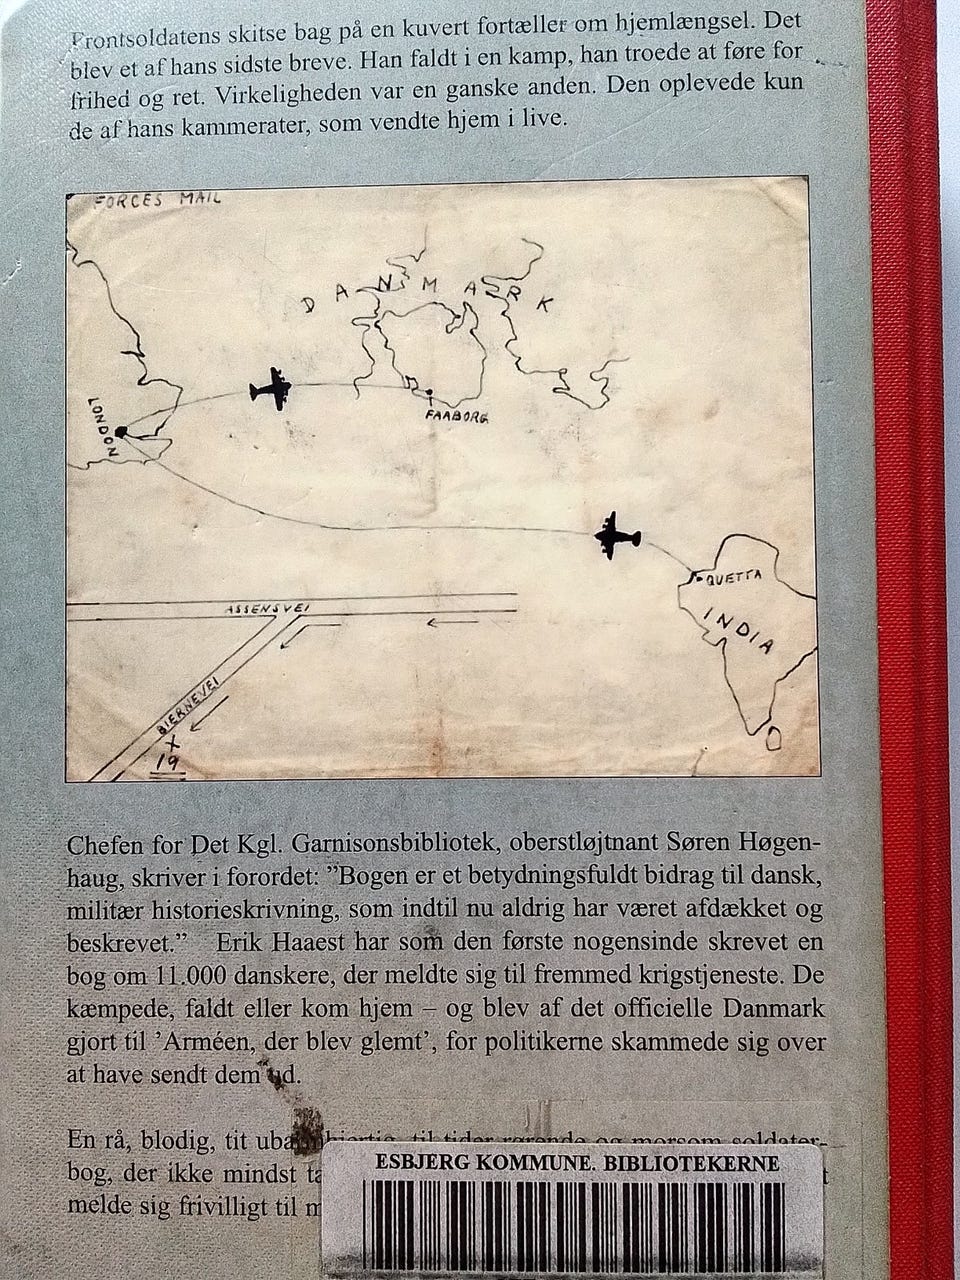 Frontsoldatens skitse bag på en kuvert fortæller om hjemlængsel. Det
blev et af hans sidste breve. Han faldt i en kamp, han troede at føre for
frihed og ret. Virkeligheden var en ganske anden. Den oplevede kun
de af hans kammerater, som vendte hjem i live.
FORCES MAIL
DANMARK
LONDON
FAABORG
QUETTA
INDIA
ASSENSVEI
BIERNEVEI
X
19
Chefen for Det Kgl. Garnisonsbibliotek, oberstløjtnant Søren Høgen-
haug, skriver i forordet: ”Bogen er et betydningsfuldt bidrag til dansk,
militær historieskrivning, som indtil nu aldrig har været afdækket og
beskrevet.” Erik Haaest har som den første nogensinde skrevet en
bog om 11.000 danskere, der meldte sig til fremmed krigstjeneste. De
kæmpede, faldt eller kom hjem – og blev af det officielle Danmark
gjort til ’Arméen, der blev glemt’, for politikerne skammede sig over
at have sendt dem ud.
En rå, blodig, tit til tider rørende og morsom soldater-
bog, der ikke mindst
melde sig frivilligt til
ESBJERG KOMMUNE. BIBLIOTEKERNE